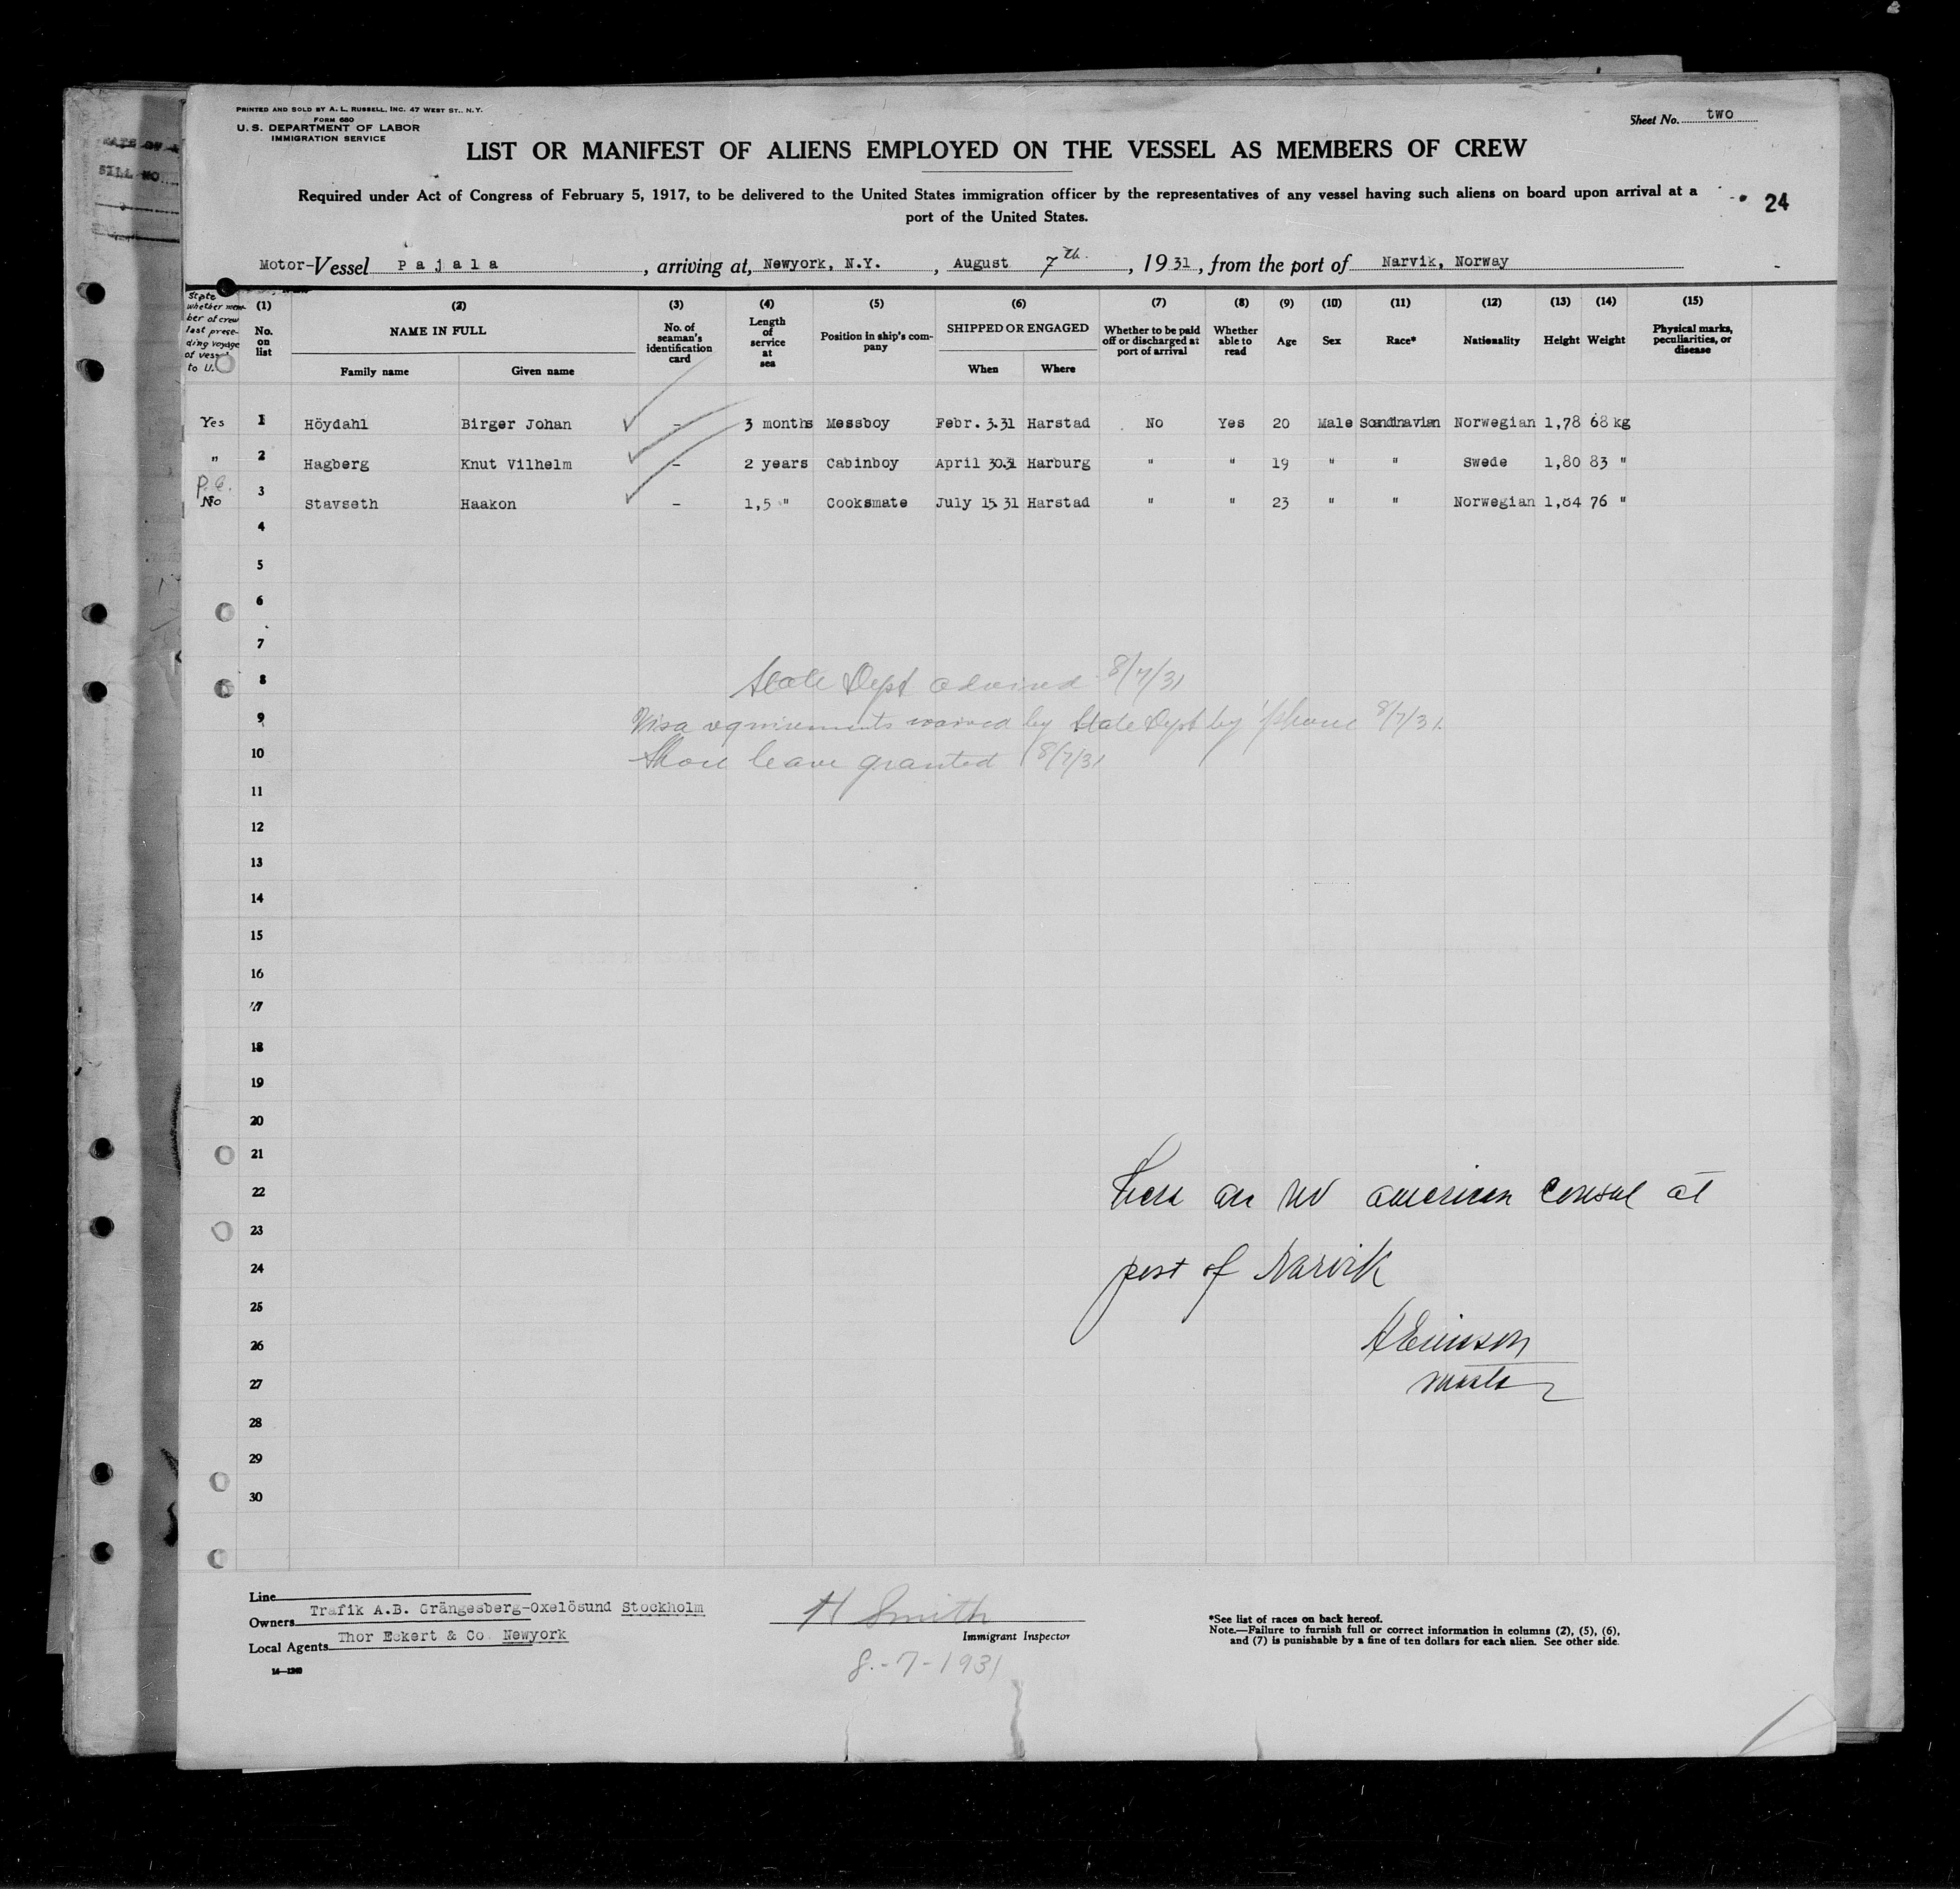 PRINTED AND SOLD BY A. L. RUSSELL, INC. 47 WEST ST., N.Y.
FORM 680
U. S. DEPARTMENT OF LABOR
IMMIGRATION SERVICE
Sheet No. two
LIST OR MANIFEST OF ALIENS EMPLOYED ON THE VESSEL AS MEMBERS OF CREW
Required under Act of Congress of February 5, 1917, to be delivered to the United States immigration officer by the representatives of any vessel having such aliens on board upon arrival at a
port of the United States.
24
Motor-Vessel Pajala, arriving at, Newyork, N.Y., August 7th, 1931, from the port of Narvik, Norway
State whether member of crew last preseding voyage of vessel to U.
(1) No. on list
(2) NAME IN FULL Family name Given name
(3) No. of seaman's identification card
(4) Length of service at sea
(5) Position in ship's company
(6) SHIPPED OR ENGAGED When Where
(7) Whether to be paid off or discharged at port of arrival
(8) Whether able to read
(9) Age
(10) Sex
(11) Race*
(12) Nationality
(13) Height
(14) Weight
(15) Physical marks, peculiarities, or disease
Yes 1 Höydahl Birger Johan – 3 months Messboy Febr. 3.31 Harstad No Yes 20 Male Scandinavian Norwegian 1,78 68 kg
" 2 Hagberg Knut Vilhelm – 2 years Cabinboy April 30.31 Harburg " " 19 " " Swede 1,80 83 "
No 3 Stavseth Haakon – 1,5 " Cooksmate July 15.31 Harstad " " 23 " " Norwegian 1,84 76 "
4
5
6
7
8 State Dept advised 8/7/31
9 Visa requirements waived by State Dept by 'phone 8/7/31.
10 Shore leave granted 8/7/31
11
12
13
14
15
16
17
18
19
20
21
22 there are no american consul at
23
24 port of Narvik
25
26
27 master
28
29
30
Line
Owners Trafik A.B. Grängesberg-Oxelösund Stockholm
Local Agents Thor Eckert & Co. Newyork
14—1240
H Smith
Immigrant Inspector
8.-7-1931
*See list of races on back hereof.
Note.—Failure to furnish full or correct information in columns (2), (5), (6),
and (7) is punishable by a fine of ten dollars for each alien. See other side.